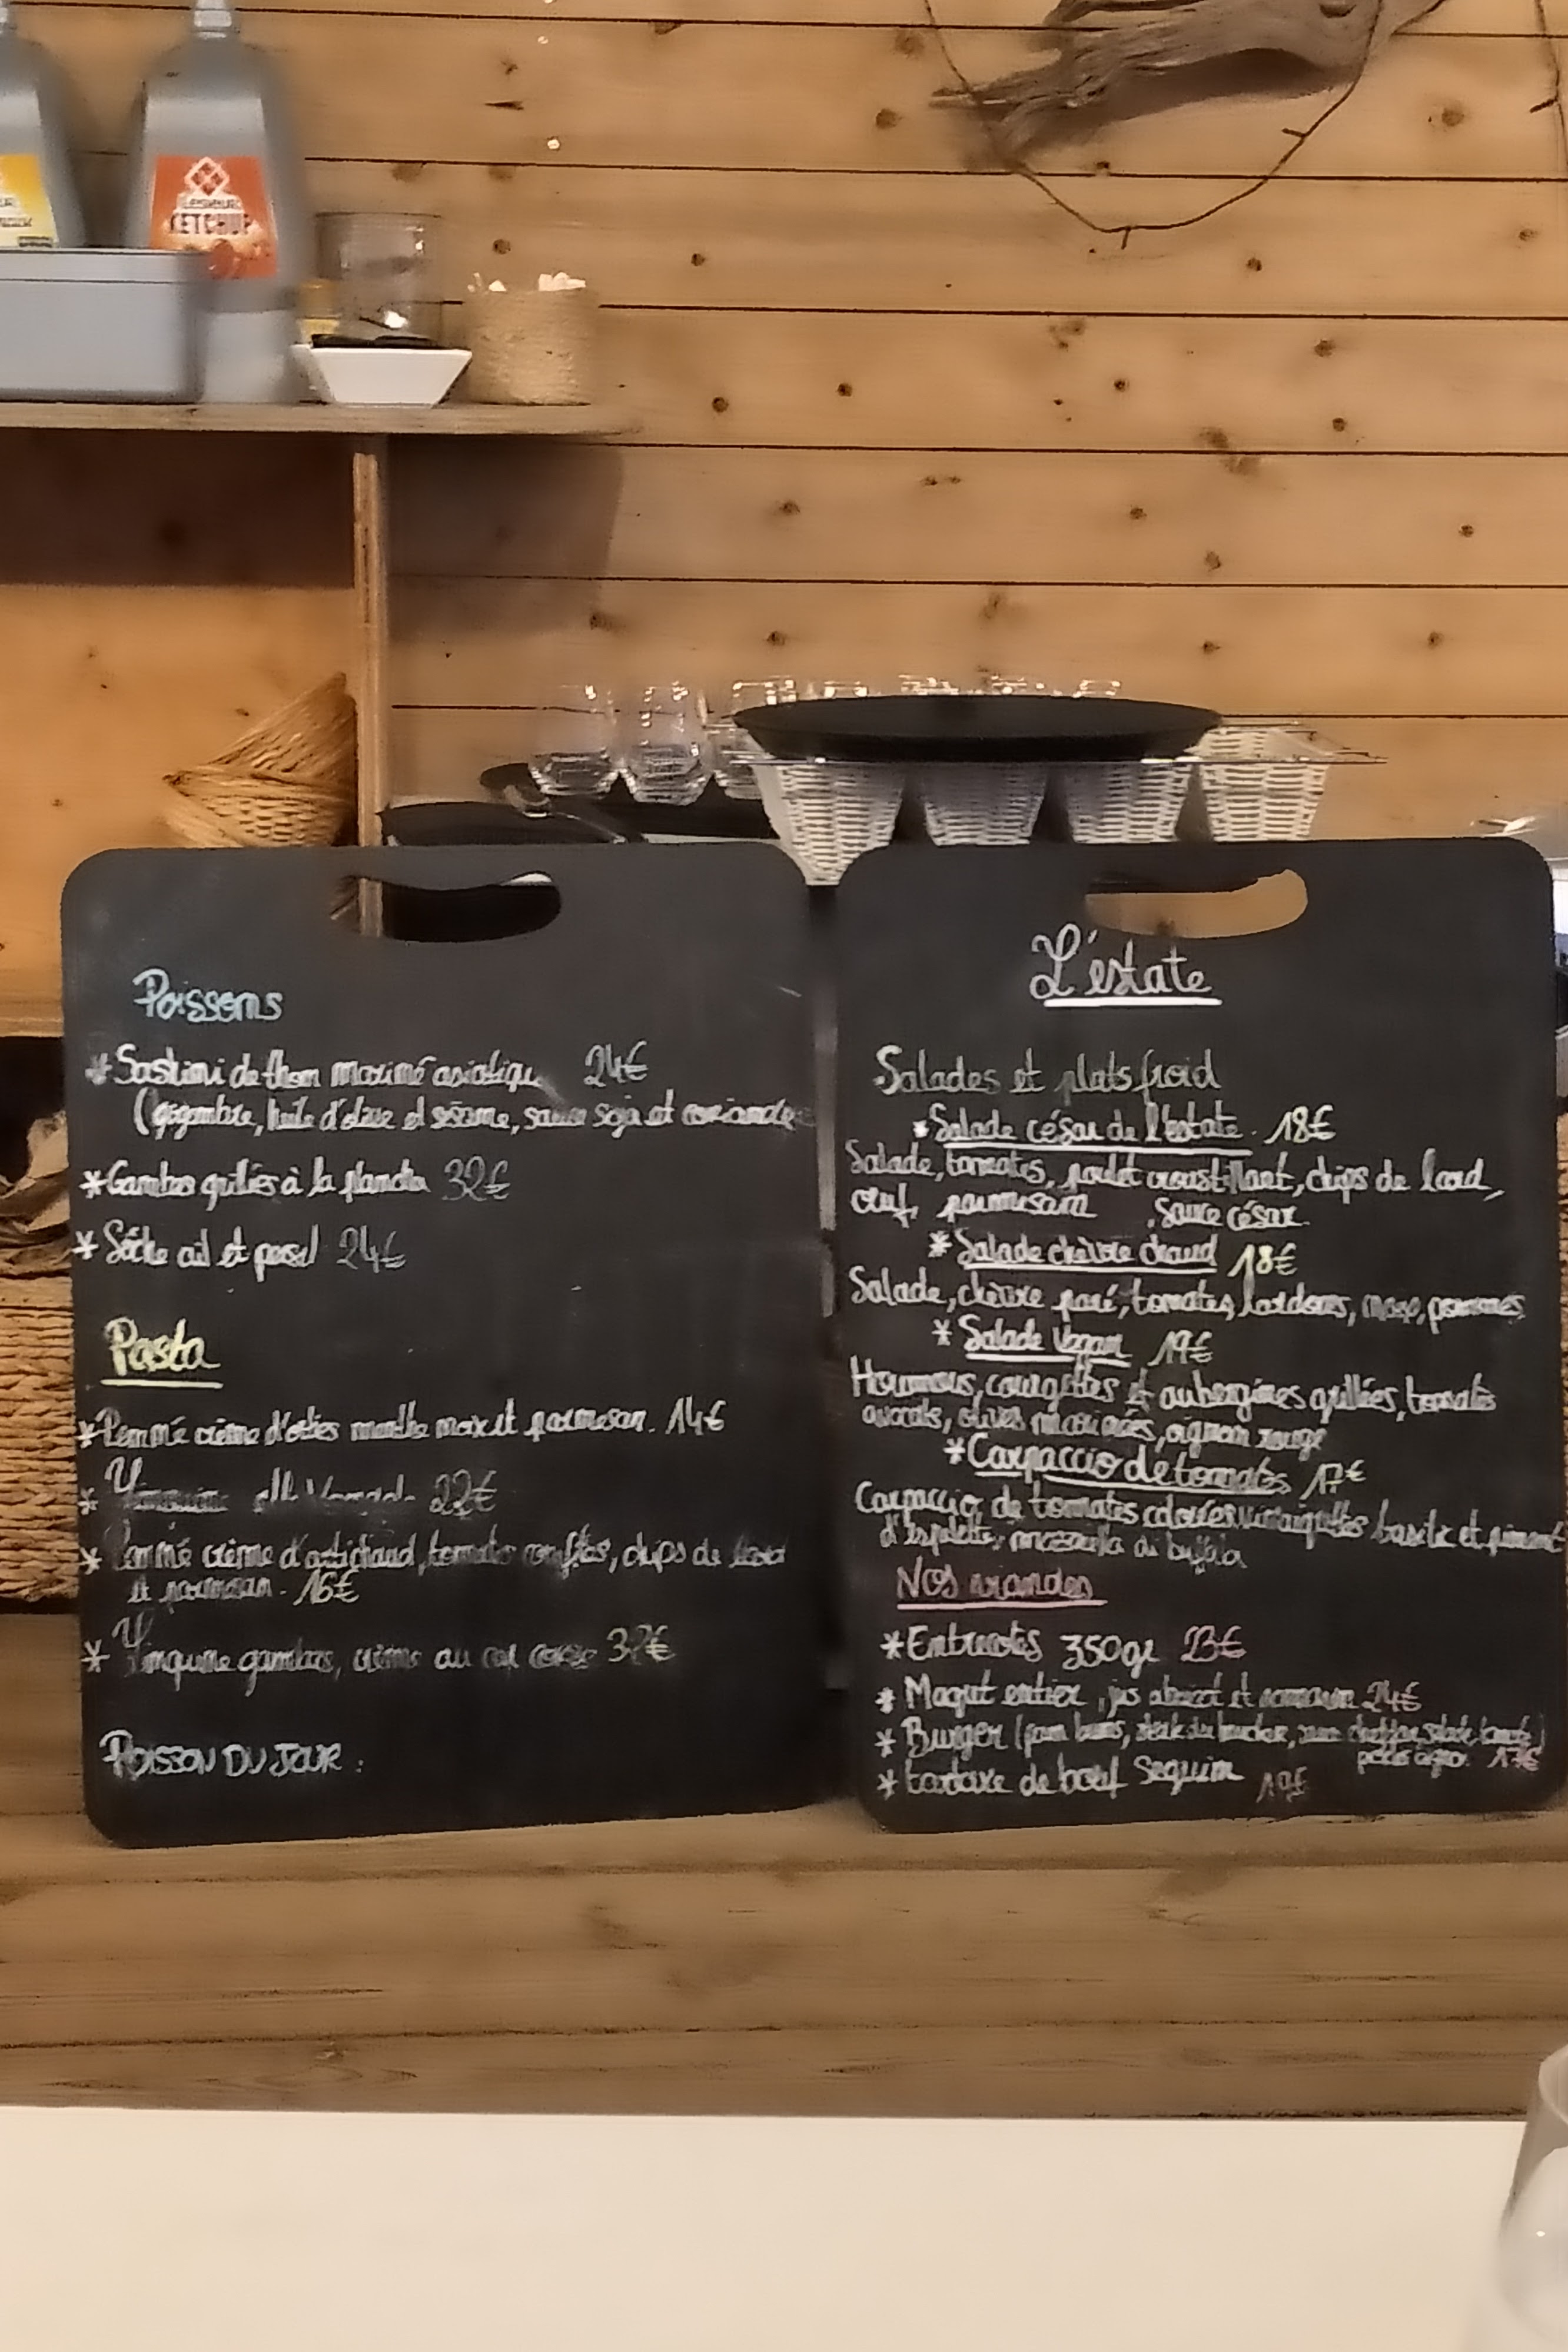 KETCHUP
Poissons
* Sashimi de thon mariné asiatique 24€
(gigembre, huile d'olive et sésame, sauce soja et coriandre
* Gambas grillés à la plancha 32€
* Sèche ail et persil 24€
Pasta
* Penné crème d'orties menthe noix et parmesan. 14€
* alle Vongole 22€
* Penné crème d'artichaud, tomates confites, chips de lard
et parmesan. 16€
* Linguine gambas, crème au cap corse 32€
POISSON DU JOUR :
L'éstate
Salades et plats froid
* Salade césar de l'estate. 18€
Salade, tomates, poulet croustillant, chips de lard,
œuf, parmesan sauce césar.
* Salade chèvre chaud 18€
Salade, chèvre pané, tomates, lardons, noix, pommes
* Salade Vegan 19€
Houmous, courgettes et aubergines grillées, tomates
avocats, olives marinées, oignon rouge
* Carpaccio de tomates 17€
Carpaccio de tomates colorées vinaigrettes basilic et piment
d'espelette, mozzarella di buffala
Nos viandes
* Entrecotes 350gr 23€
* Magret entier, jus abricot et romarin 24€
* Burger (pain buns, steak du boucher, sauce cheddar, salade, tomate)
17€
* tartare de bœuf Sequim 19€